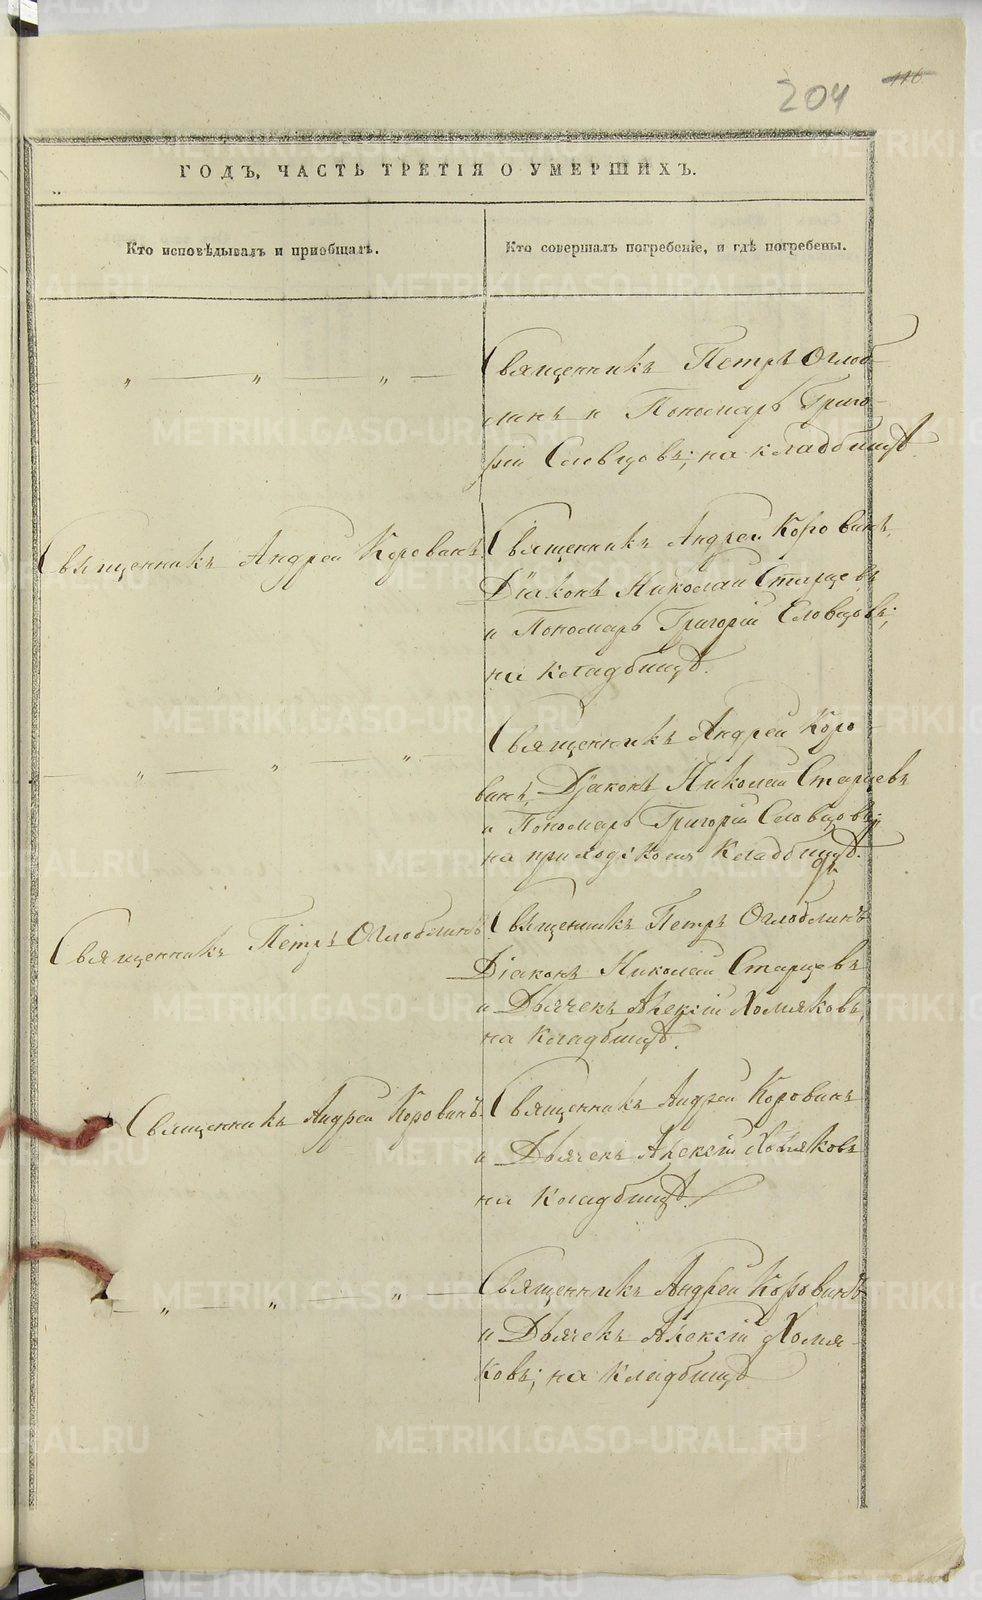 204
116
ГОДЪ, ЧАСТЬ ТРЕТІЯ О УМЕРШИХЪ.
Кто исповѣдывалъ и приобщалъ.
Кто совершалъ погребеніе, и гдѣ погребены.
— „ — „ — „ —
Священникъ Петръ Оглоб-
линъ и Пономарь Григо-
рій Словцовъ; на кладбищѣ.
Священникъ Андрей Коровинъ
Священникъ Андрей Коровинъ,
Діаконъ Николай Старцевъ
и Пономарь Григорій Словцовъ;
на кладбищѣ.
— „ — „ — „ —
Священникъ Андрей Коро-
винъ, Діаконъ Николай Старцевъ
и Пономарь Григорій Словцовъ;
на приходскомъ кладбищѣ.
Священникъ Петръ Оглоблинъ
Священникъ Петръ Оглоблинъ
Діаконъ Николай Старцевъ
и Дьячекъ Алексій Хомяковъ,
на кладбищѣ.
Священникъ Андрей Коровинъ.
Священникъ Андрей Коровинъ
и Дьячекъ Алексій Хомяковъ
на кладбищѣ.
— „ — „ — „ —
Священникъ Андрей Коровинъ
и Дьячекъ Алексій Хомя-
ковъ; на кладбищѣ
METRIKI.GASO-URAL.RU